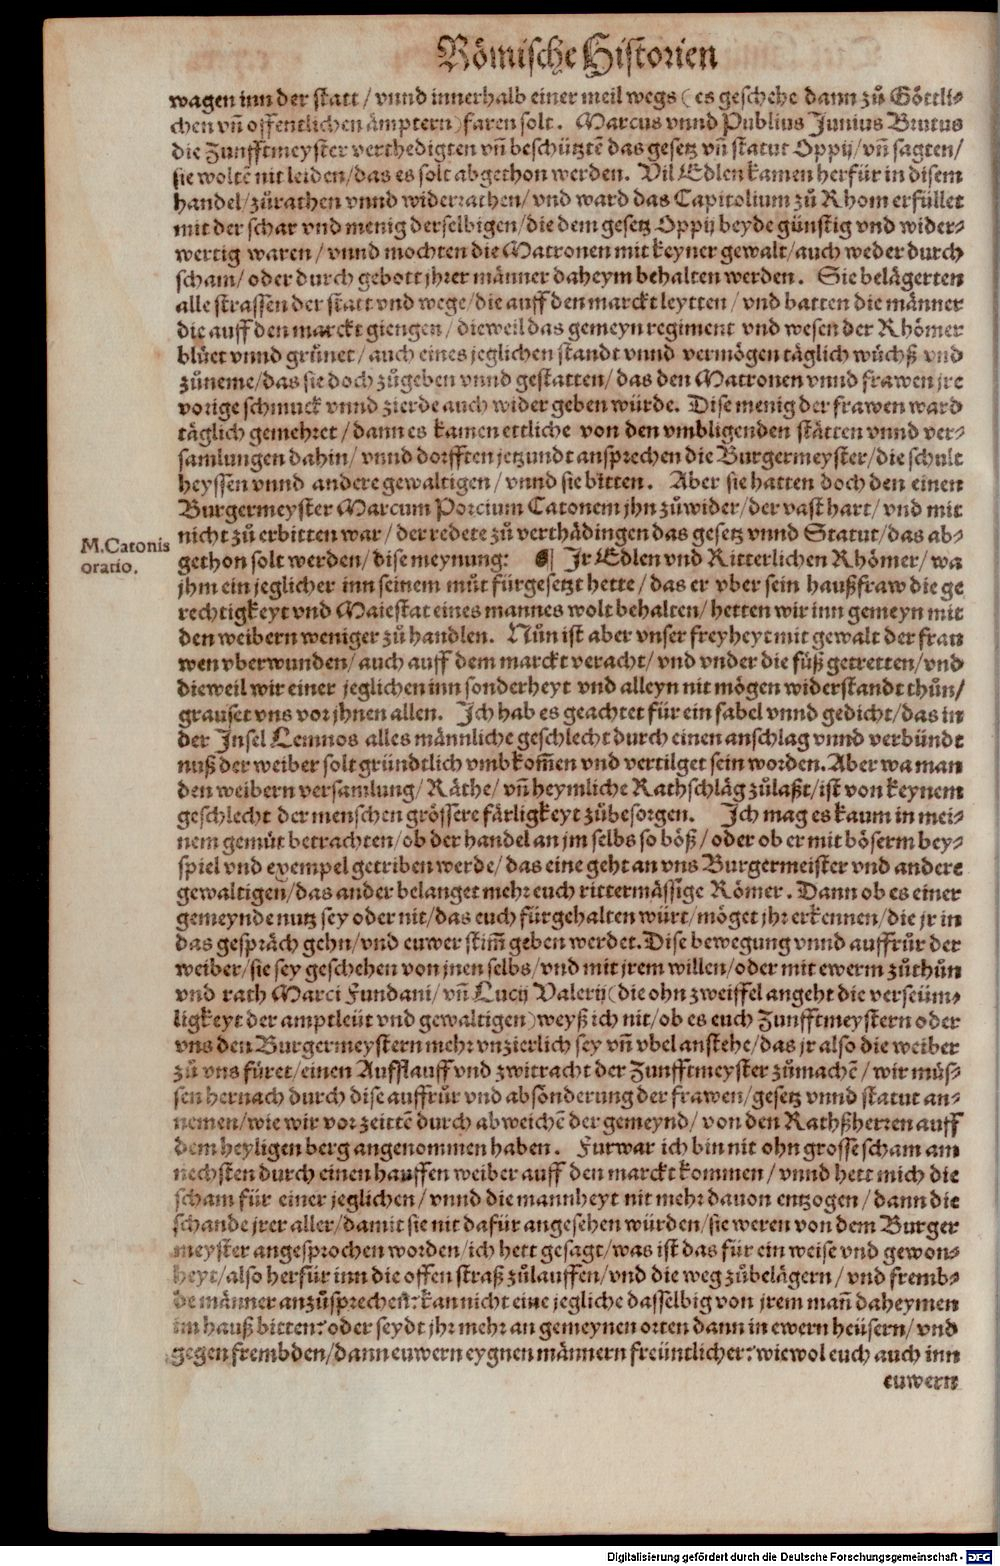 Römische Historien
wagen inn der statt / vnnd innerhalb einer meil wegs (es geschehe dann zů Göttli⸗
chen vñ offentlichen ämptern) faren solt. Marcus vnnd Publius Junius Brutus
die Zunfftmeyster verthedigten vñ beschütztẽ das gesetz vñ statut Oppij / vñ sagten /
sie woltẽ nit leiden / das es solt abgethon werden. Vil Edlen kamen herfür in disem
handel / zůrathen vnnd widerrathen / vnd ward das Capitolium zů Rhom erfüllet
mit der schar vnd menig derselbigen / die dem gesetz Oppij beyde günstig vnd wider⸗
wertig waren / vnnd mochten die Matronen mit keyner gewalt / auch weder durch
scham / oder durch gebott jhrer männer daheym behalten werden. Sie belägerten
alle strassen der statt vnd wege / die auff den marckt leytten / vnd batten die männer
die auff den marckt giengen / dieweil das gemeyn regiment vnd wesen der Rhömer
blüet vnnd grünet / auch eines jeglichen standt vnnd vermögen täglich wüchß vnd
zůneme / das sie doch zůgeben vnnd gestatten / das den Matronen vnnd frawen jre
vorige schmuck vnnd zierde auch wider geben würde. Dise menig der frawen ward
täglich gemehret / dann es kamen ettliche von den vmbligenden stätten vnnd ver⸗
samlungen dahin / vnnd dorfften jetzundt ansprechen die Burgermeyster / die schult
heyssen vnnd andere gewaltigen / vnnd sie bitten. Aber sie hatten doch den einen
Burgermeyster Marcum Porcium Catonem jhn zůwider / der vast hart / vnd mit
nicht zů erbitten war / der redete zů verthädingen das gesetz vnnd Statut / das ab⸗
M. Catonis
oratio.
gethon solt werden / dise meynung: ¶ Jr Edlen vnd Ritterlichen Rhömer / wa
jhm ein jeglicher inn seinem můt fürgesetzt hette / das er vber sein haußfraw die ge
rechtigkeyt vnd Maiestat eines mannes wolt behalten / hetten wir inn gemeyn mit
den weibern weniger zů handlen. Nůn ist aber vnser freyheyt mit gewalt der frau
wen vberwunden / auch auff dem marckt veracht / vnd vnder die füß getretten / vnd
dieweil wir einer jeglichen inn sonderheyt vnd alleyn nit mögen widerstandt thůn /
grauset vns vor jhnen allen. Ich hab es geachtet für ein fabel vnnd gedicht / das in
der Insel Lemnos alles männliche geschlecht durch einen anschlag vnnd verbündt
nuß der weiber solt gründtlich vmbkom̃en vnd vertilget sein worden. Aber wa man
den weibern versamlung / Räthe / vñ heymliche Rathschläg zůlaßt / ist von keynem
geschlecht der menschen grössere färligkeyt zůbesorgen. Ich mag es kaum in mei⸗
nem gemůt betrachten / ob der handel an jm selbs so böß / oder ob er mit böserm bey⸗
spiel vnd exempel getriben werde / das eine geht an vns Burgermeister vnd andere
gewaltigen / das ander belanget mehr euch rittermässige Römer. Dann ob es einer
gemeynde nutz sey oder nit / das euch fürgehalten würt / möget jhr erkennen / die jr in
das gespräch gehn / vnd euwer stim̃ geben werdet. Dise bewegung vnnd auffrůr der
weiber / sie sey geschehen von jnen selbs / vnd mit jrem willen / oder mit ewerm zůthůn
vnd rath Marci Fundani / vñ Lucij Valerij (die ohn zweiffel angeht die verseüm⸗
ligkeyt der amptleüt vnd gewaltigen) weyß ich nit / ob es euch Zunfftmeystern oder
vns den Burgermeystern mehr vnzierlich sey vñ vbel anstehe / das jr also die weiber
zů vns füret / einen Aufflauff vnd zwitracht der Zunfftmeyster zůmachẽ / wir müs⸗
sen hernach durch dise auffrůr vnd absönderung der frawen / gesetz vnnd statut an⸗
nemen / wie wir vor zeittẽ durch abweichẽ der gemeynd / von den Rathßherren auff
dem heyligen berg angenommen haben. Furwar ich bin nit ohn grosse scham am
nechsten durch einen hauffen weiber auff den marckt kommen / vnnd hett mich die
scham für einer jeglichen / vnnd die mannheyt nit mehr dauon entzogen / dann die
schande jrer aller / damit sie nit dafür angesehen würden / sie weren von dem Burger
meyster angesprochen worden / ich hett gesagt / was ist das für ein weise vnd gewon⸗
heyt / also herfür inn die offen straß zůlauffen / vnd die weg zůbelägern / vnd fremb⸗
de männer anzůsprechen? kan nicht eine jegliche dasselbig von jrem mañ daheymen
im hauß bitten? oder seydt jhr mehr an gemeynen orten dann in ewern heüsern / vnd
gegen frembden / dann euwern eygnen männern freüntlicher? wiewol euch auch inn
euwern
Digitalisierung gefördert durch die Deutsche Forschungsgemeinschaft - DFG